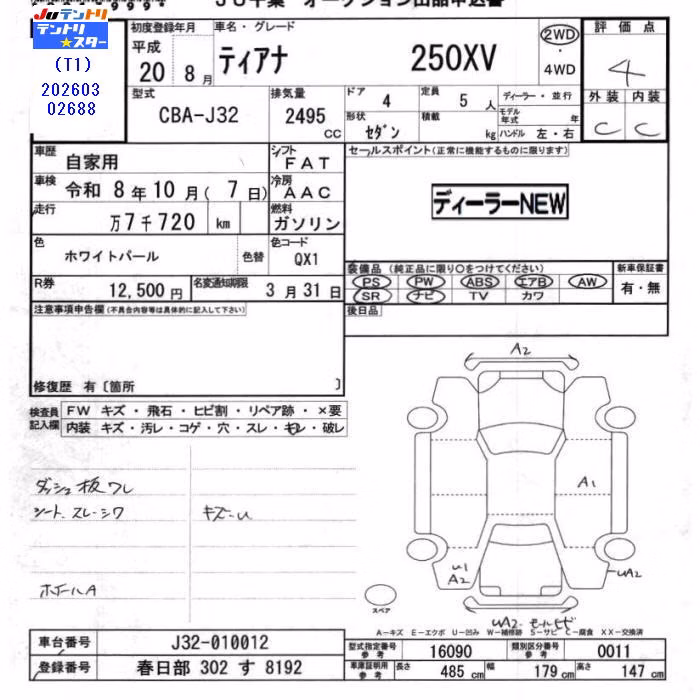 JU千葉 オークション出品申込書
9999
JUテントリ
テントリ
★スター
(T1)
202603
02688
初度登録年月
平成
20 8月
車名・グレード
ティアナ 250XV
2WD
・
4WD
評価点
4
外装 内装
C C
型式
CBA-J32
排気量
2495
CC
ドア 4
定員 5 人
形状 セダン
積載 kg
ディーラー・並行
モデル年式 年
ハンドル 左・右
車歴 自家用
シフト FAT
車検 令和 8年10月( 7日)
冷房 AAC
走行 万7千720 km
燃料 ガソリン
色 ホワイトパール
色替
色コード QX1
R券 12,500円
名変通知期限 3月31日
セールスポイント(正常に機能するものに限ります)
ディーラーNEW
装備品(純正品に限り○をつけてください)
PS PW ABS エアB AW
SR ナビ TV カワ
新車保証書
有・無
後日品
注意事項申告欄(不具合内容等は具体的に記入して下さい)
修復歴 有〔箇所 〕
検査員
記入欄
FW キズ・飛石・ヒビ割・リペア跡・×要
内装 キズ・汚レ・コゲ・穴・スレ・キレ・破レ
ダッシュ板ワレ
シート、スレ-シワ
キズ-U
ホイールA
A2
A1
U1
A2
UA2
UA2、モールヒビ
スペア
A-キズ E-エクボ U-凹み W-補修跡 S-サビ C-腐食 XX-交換済
車台番号 J32-010012
登録番号 春日部 302 す 8192
型式指定番号
参考
16090
類別区分番号
参考
0011
車庫証明用
参考
長さ 485cm 幅 179cm 高さ 147cm